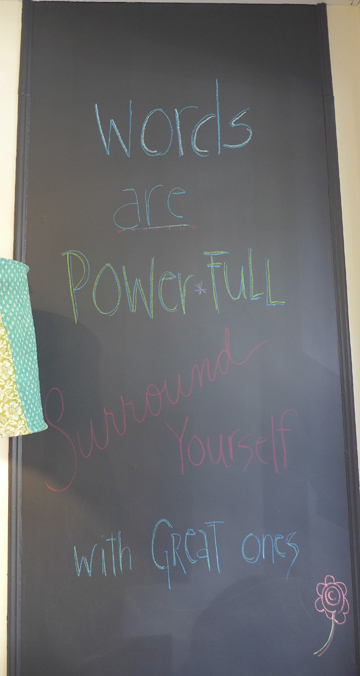 Words
are
Power*Full
Surround
Yourself
with Great ones